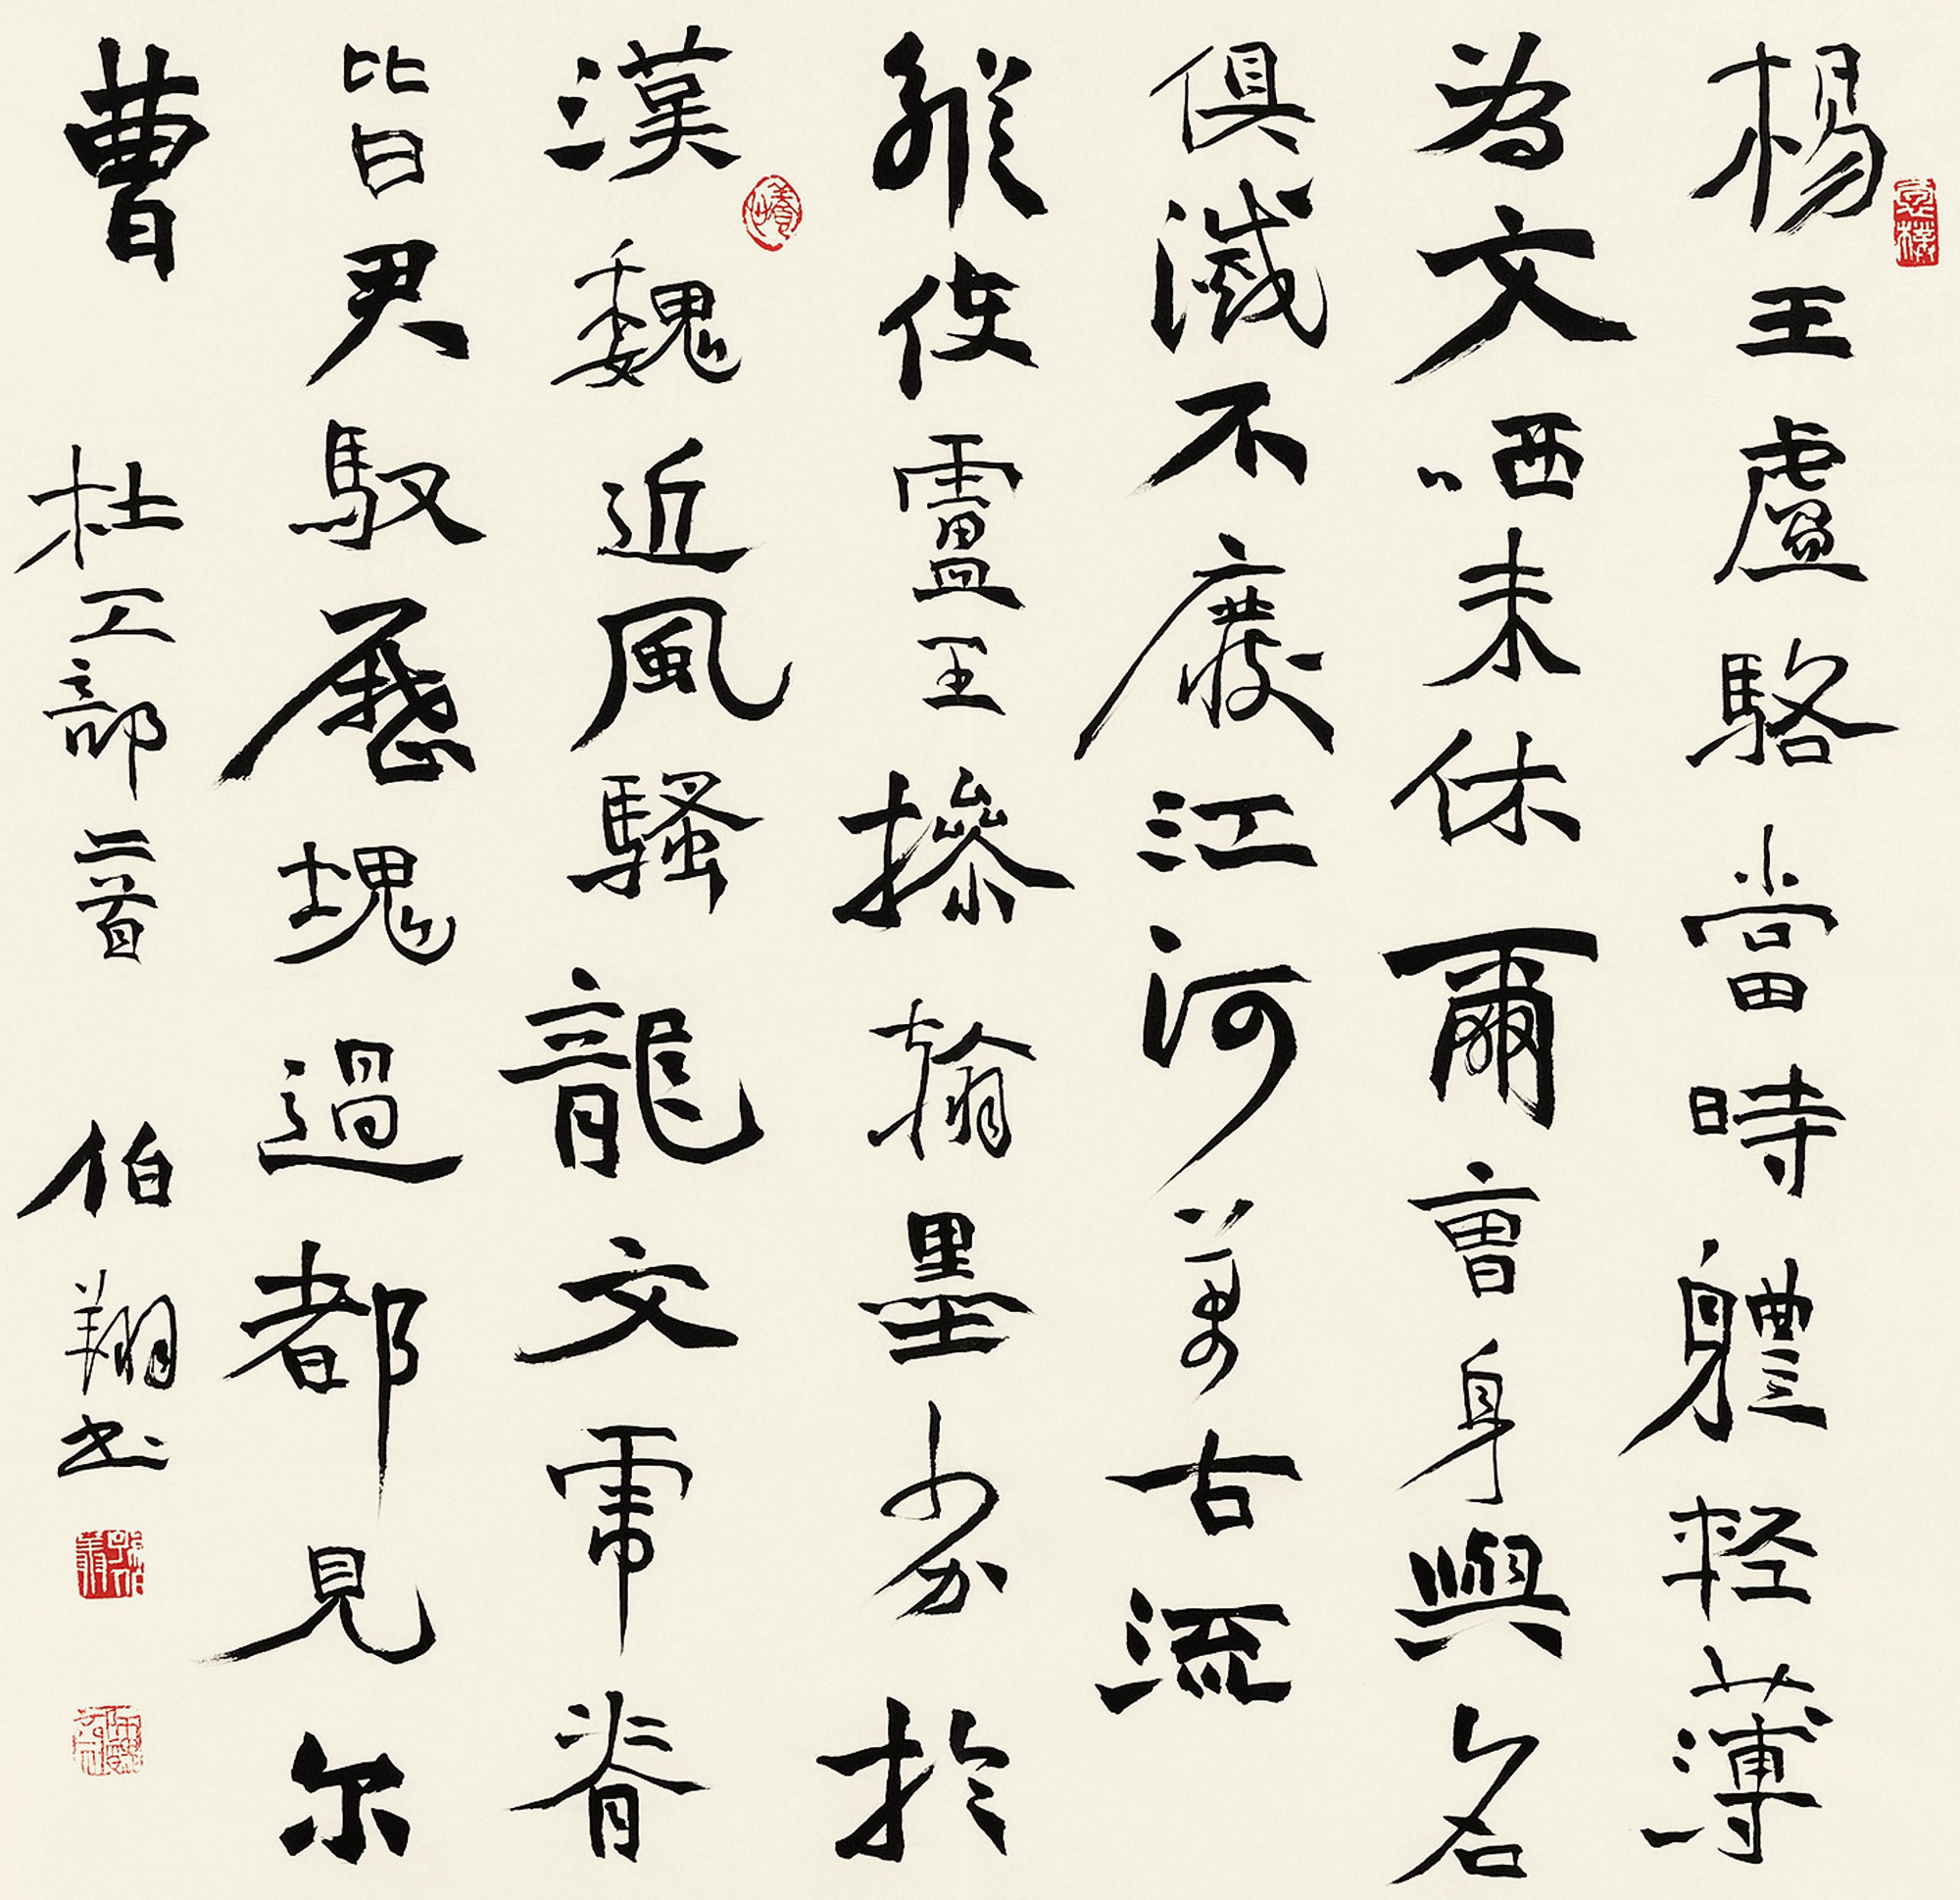 楊王盧駱當時軆輕薄
為文哂未休爾曹身與名
俱滅不廢江河萬古流
縱使盧王操翰墨劣於
漢魏近風騷龍文虎脊
皆君馭歷塊過都見尔
曹 杜工部二首 伯翔書